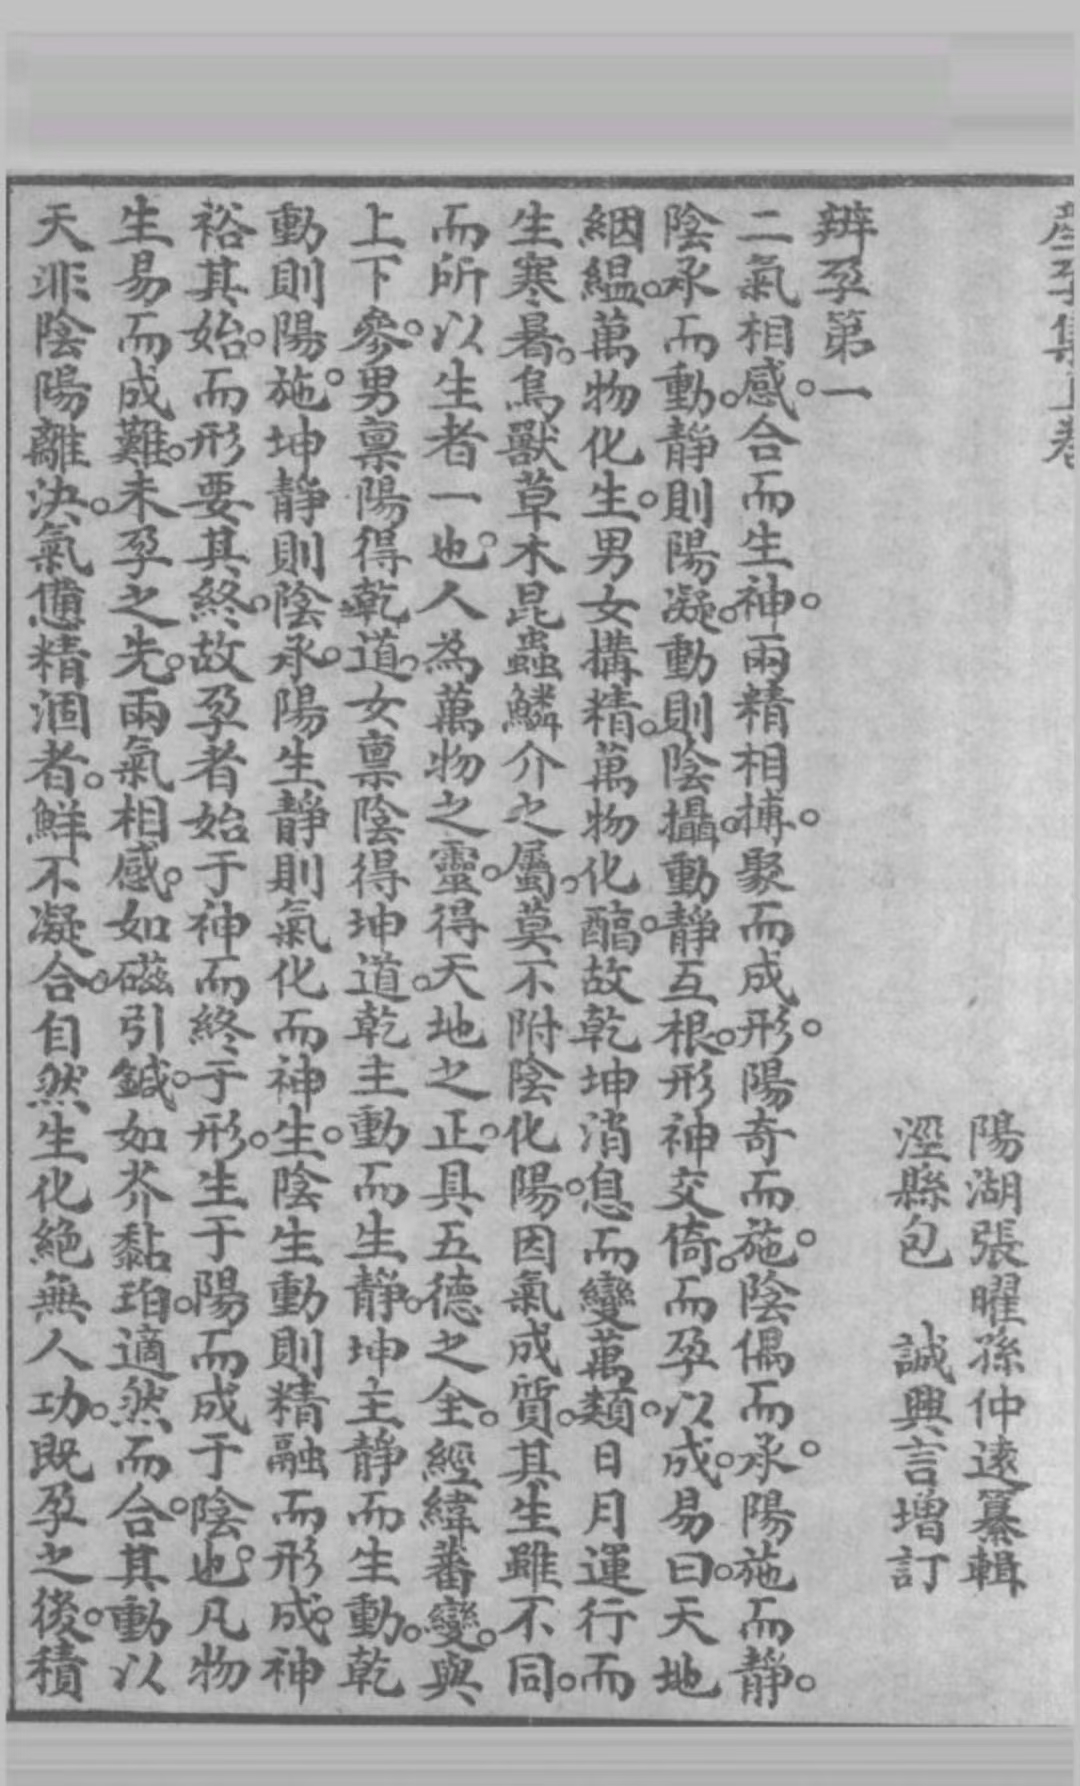 產孕集上卷
陽湖張曜孫仲遠纂輯
涇縣包　誠興言增訂
辨孕第一
二氣相感。合而生神。兩精相摶。聚而成形。陽奇而施。陰偶而承。陽施而靜。
陰承而動。靜則陽凝。動則陰攝。動靜互根。形神交倚。而孕以成。易曰。天地
絪縕。萬物化生。男女搆精。萬物化醕。故乾坤消息而變萬類。日月運行而
生寒暑。鳥獸草木昆蟲鱗介之屬。莫不附陰化陽。因氣成質。其生雖不同。
而所以生者一也。人為萬物之靈。得天地之正。具五德之全。經緯蕃變。與
上下參。男禀陽得乾道。女禀陰得坤道。乾主動而生靜。坤主靜而生動。乾
動則陽施。坤靜則陰承。陽生靜則氣化而神生。陰生動則精融而形成。神
裕其始。而形要其終。故孕者始于神而終于形。生于陽而成于陰也。凡物
生易而成難。未孕之先。兩氣相感。如磁引鍼。如芥黏珀。適然而合。其動以
天。非陰陽離決。氣憊精涸者。鮮不凝合。自然生化。絕無人功。既孕之後。積